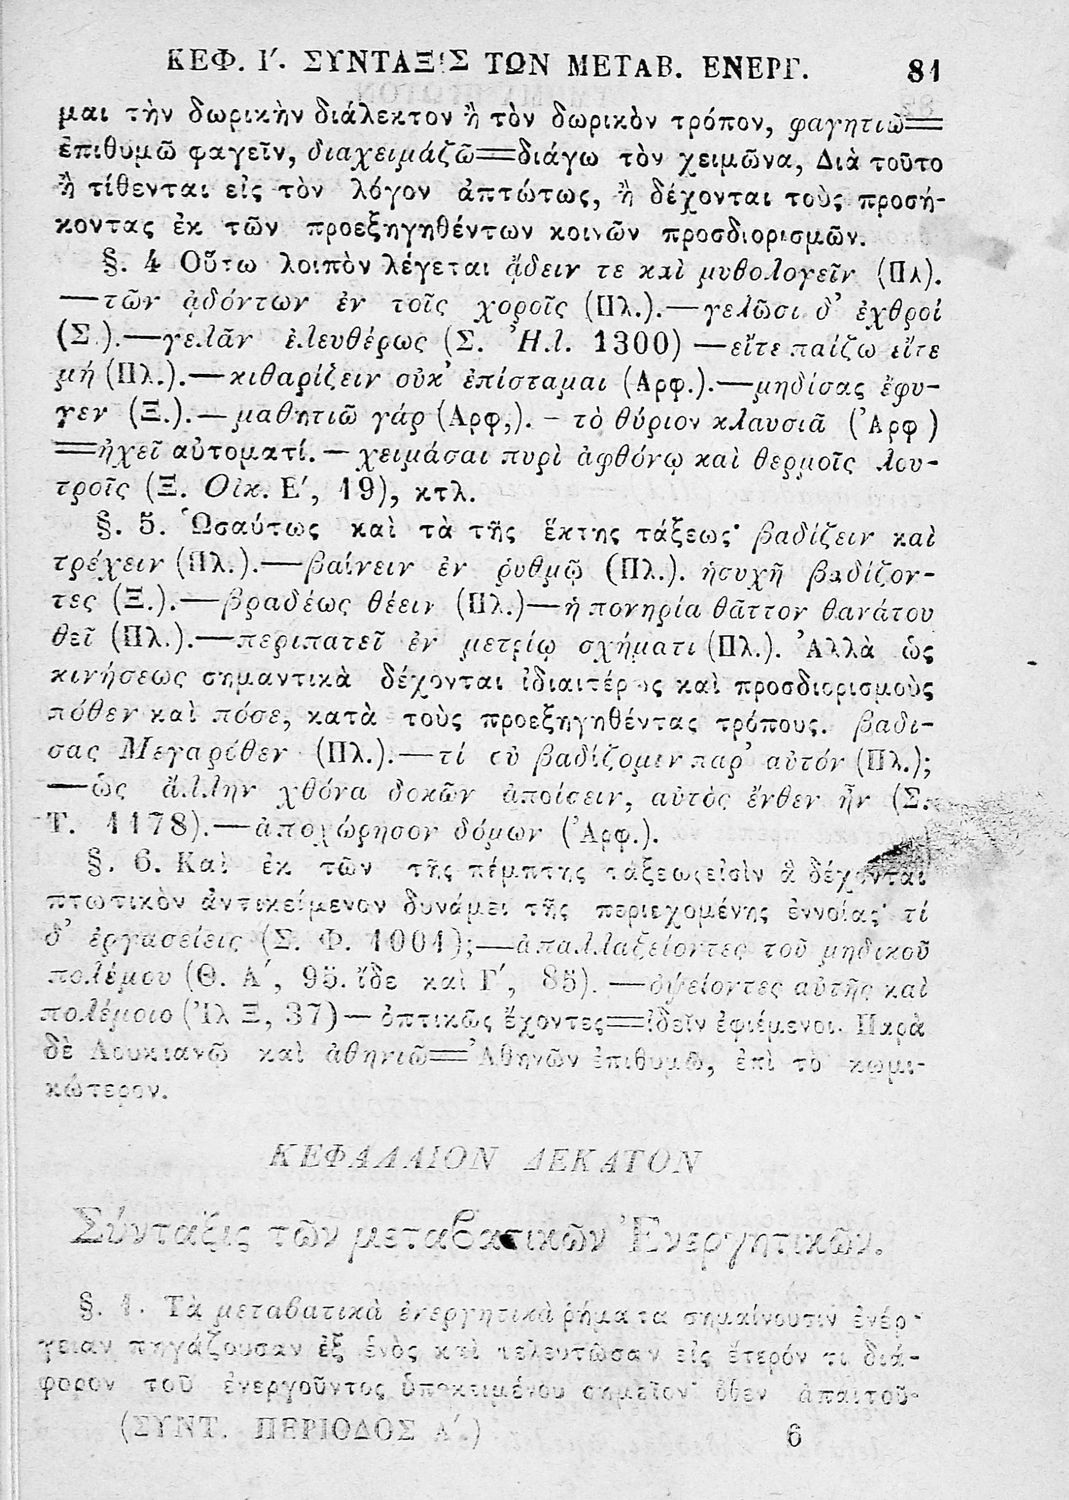 ΚΕΦ. Ι′. ΣΥΝΤΑΞΙΣ ΤΩΝ ΜΕΤΑΒ. ΕΝΕΡΓ. 81
μαι τὴν δωρικὴν διάλεκτον ἢ τὸν δωρικὸν τρόπον, φαγητιῶ=
ἐπιθυμῶ φαγεῖν, διαχειμάζω=διάγω τὸν χειμῶνα, Διὰ τοῦτο
ἢ τίθενται εἰς τὸν λόγον ἀπτώτως, ἢ δέχονται τοὺς προσή-
κοντας ἐκ τῶν προεξηγηθέντων κοινῶν προσδιορισμῶν.
§. 4 Οὕτω λοιπὸν λέγεται ᾄδειν τε καὶ μυθολογεῖν (Πλ).
—τῶν ᾀδόντων ἐν τοῖς χοροῖς (Πλ.).—γελῶσι δ’ ἐχθροί
(Σ.).—γελᾶν ἐλευθέρως (Σ. Ἠλ. 1300) —εἴτε παίζω εἴτε
μή (Πλ.).—κιθαρίζειν οὐκ’ ἐπίσταμαι (Αρφ.).—μηδίσας ἔφυ-
γεν (Ξ.).—μαθητιῶ γάρ (Αρφ,). – τὸ θύριον κλαυσιᾶ (Ἀρφ)
=ἠχεῖ αὐτοματί.—χειμάσαι πυρὶ ἀφθόνῳ καὶ θερμοῖς λου-
τροῖς (Ξ. Οἰκ. Ε′, 19), κτλ.
§. 5. Ὡσαύτως καὶ τὰ τῆς ἕκτης τάξεως· βαδίζειν καὶ
τρέχειν (Πλ.).—βαίνειν ἐν ῥυθμῷ (Πλ.). ἡσυχῆ βαδίζον-
τες (Ξ.).—βραδέως θέειν (Πλ.)—ἡ πονηρία θᾶττον θανάτου
θεῖ (Πλ.).—περιπατεῖ ἐν μετρίῳ σχήματι (Πλ.). Ἀλλὰ ὡς
κινήσεως σημαντικὰ δέχονται ἰδιαιτέρως καὶ προσδιορισμοὺς
πόθεν καὶ πόσε, κατὰ τοὺς προεξηγηθέντας τρόπους. βαδι-
σας Μεγαρόθεν (Πλ.).—τί οὐ βαδίζομεν παρ’ αὐτόν (Πλ.);
—ὡς ἄλλην χθόνα δοκῶν ἀποίσειν, αὐτὸς ἔνθεν ἦν (Σ.
Τ. 1178).—ἀποχώρησον δόμων (Ἀρφ.).
§. 6. Καὶ ἐκ τῶν τῆς πέμπτης τάξεως εἰσὶν ἃ δέχονται
πτωτικὸν ἀντικείμενον δυνάμει τῆς περιεχομένης ἐννοίας· τί
δ’ ἐργασείεις (Σ. Φ. 1001);—ἀπαλλαξείοντες τοῦ μηδικοῦ
πολέμου (Θ. Α′, 95. ἴδε καὶ Γ′, 85).—ὀψείοντες αὐτῆς καὶ
πολέμοιο (Ἰλ Ξ, 37)—ὀπτικῶς ἔχοντες=ἰδεῖν ἐφιέμενοι. Παρὰ
δὲ Λουκιανῷ καὶ ἀθηνιῶ=Ἀθηνῶν ἐπιθυμῶ, ἐπὶ τὸ κωμι-
κώτερον.
ΚΕΦΑΛΑΙΟΝ ΔΕΚΑΤΟΝ
Σύνταξις τῶν μεταβατικῶν Ἐνεργητικῶν.
§. 1. Τὰ μεταβατικὰ ἐνεργητικὰ ῥήματα σημαίνουσιν ἐνέρ-
γειαν πηγάζουσαν ἐξ ἑνὸς καὶ τελευτῶσαν εἰς ἕτερόν τι διά-
φορον τοῦ ἐνεργοῦντος ὑποκειμένου σημεῖον· ὅθεν ἀπαιτοῦ-
(ΣΥΝΤ. ΠΕΡΙΟΔΟΣ Α′.) 6